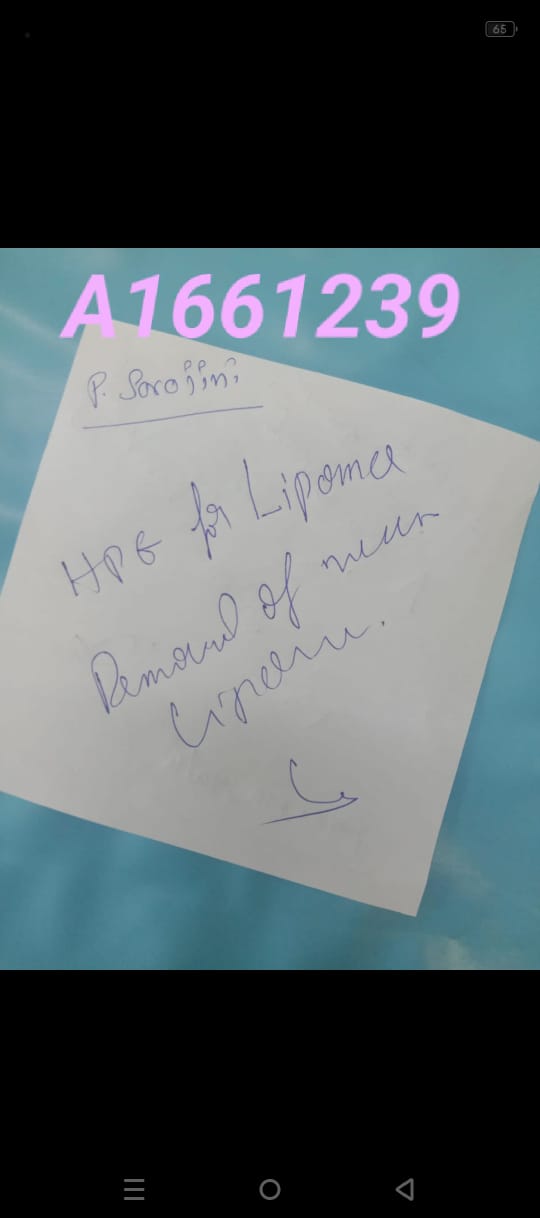 65
A1661239
P. Sarojini
HPE for Lipoma
Removal of